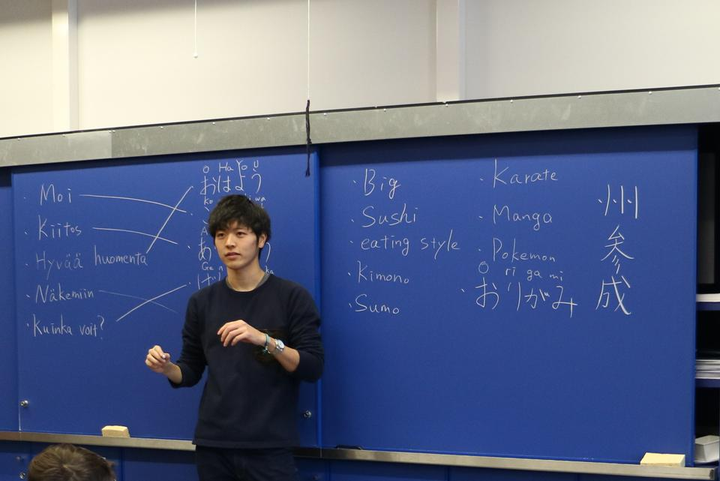 · Moi
· Kiitos
· Hyvää huomenta
· Näkemiin
· Kuinka voit?
O Ha Yo U
おはよう
· Big
· Sushi
· eating style
· Kimono
· Sumo
· Karate
· Manga
· Pokemon
O ri ga mi
· おりがみ
州
参
成